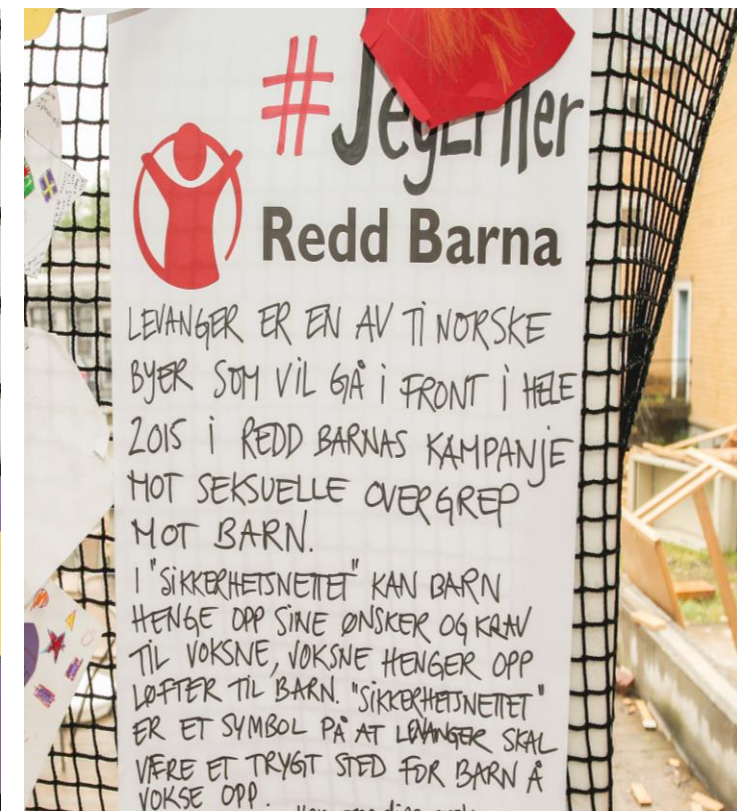 #JegErHer
Redd Barna
LEVANGER ER EN AV TI NORSKE
BYER SOM VIL GÅ I FRONT I HELE
2015 I REDD BARNAS KAMPANJE
MOT SEKSUELLE OVERGREP
MOT BARN.
I "SIKKERHETSNETTET" KAN BARN
HENGE OPP SINE ØNSKER OG KRAV
TIL VOKSNE, VOKSNE HENGER OPP
LØFTER TIL BARN. "SIKKERHETSNETTET"
ER ET SYMBOL PÅ AT LEVANGER SKAL
VÆRE ET TRYGT STED FOR BARN Å
VOKSE OPP.